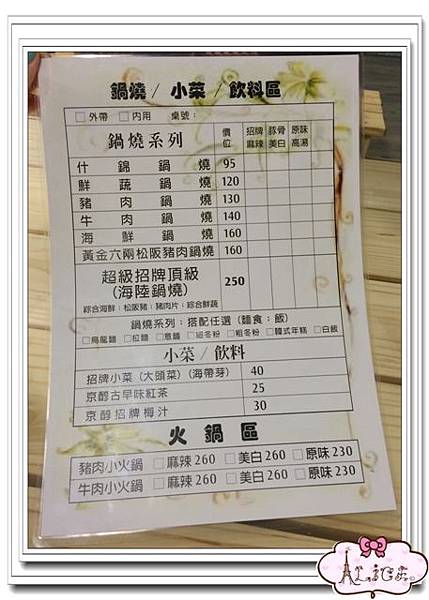 鍋燒/ 小菜/飲料區
□外帶 □內用 桌號：
鍋燒系列 價位 招牌麻辣 豚骨美白 原味高湯
什錦鍋燒 95
鮮蔬鍋燒 120
豬肉鍋燒 130
牛肉鍋燒 140
海鮮鍋燒 160
黃金六兩松阪豬肉鍋燒 160
超級招牌頂級 250
(海陸鍋燒)
綜合海鮮：松阪豬：豬肉片：綜合鮮蔬
鍋燒系列：搭配任選(麵食：飯)
□烏龍麵 □拉麵 □意麵 □細冬粉 □粗冬粉 □韓式年糕 □白飯
小菜/飲料
招牌小菜(大頭菜)(海帶芽) 40
京醇古早味紅茶 25
京醇招牌梅汁 30
火鍋區
豬肉小火鍋 □麻辣260 □美白260 □原味230
牛肉小火鍋 □麻辣260 □美白260 □原味230
ALICE